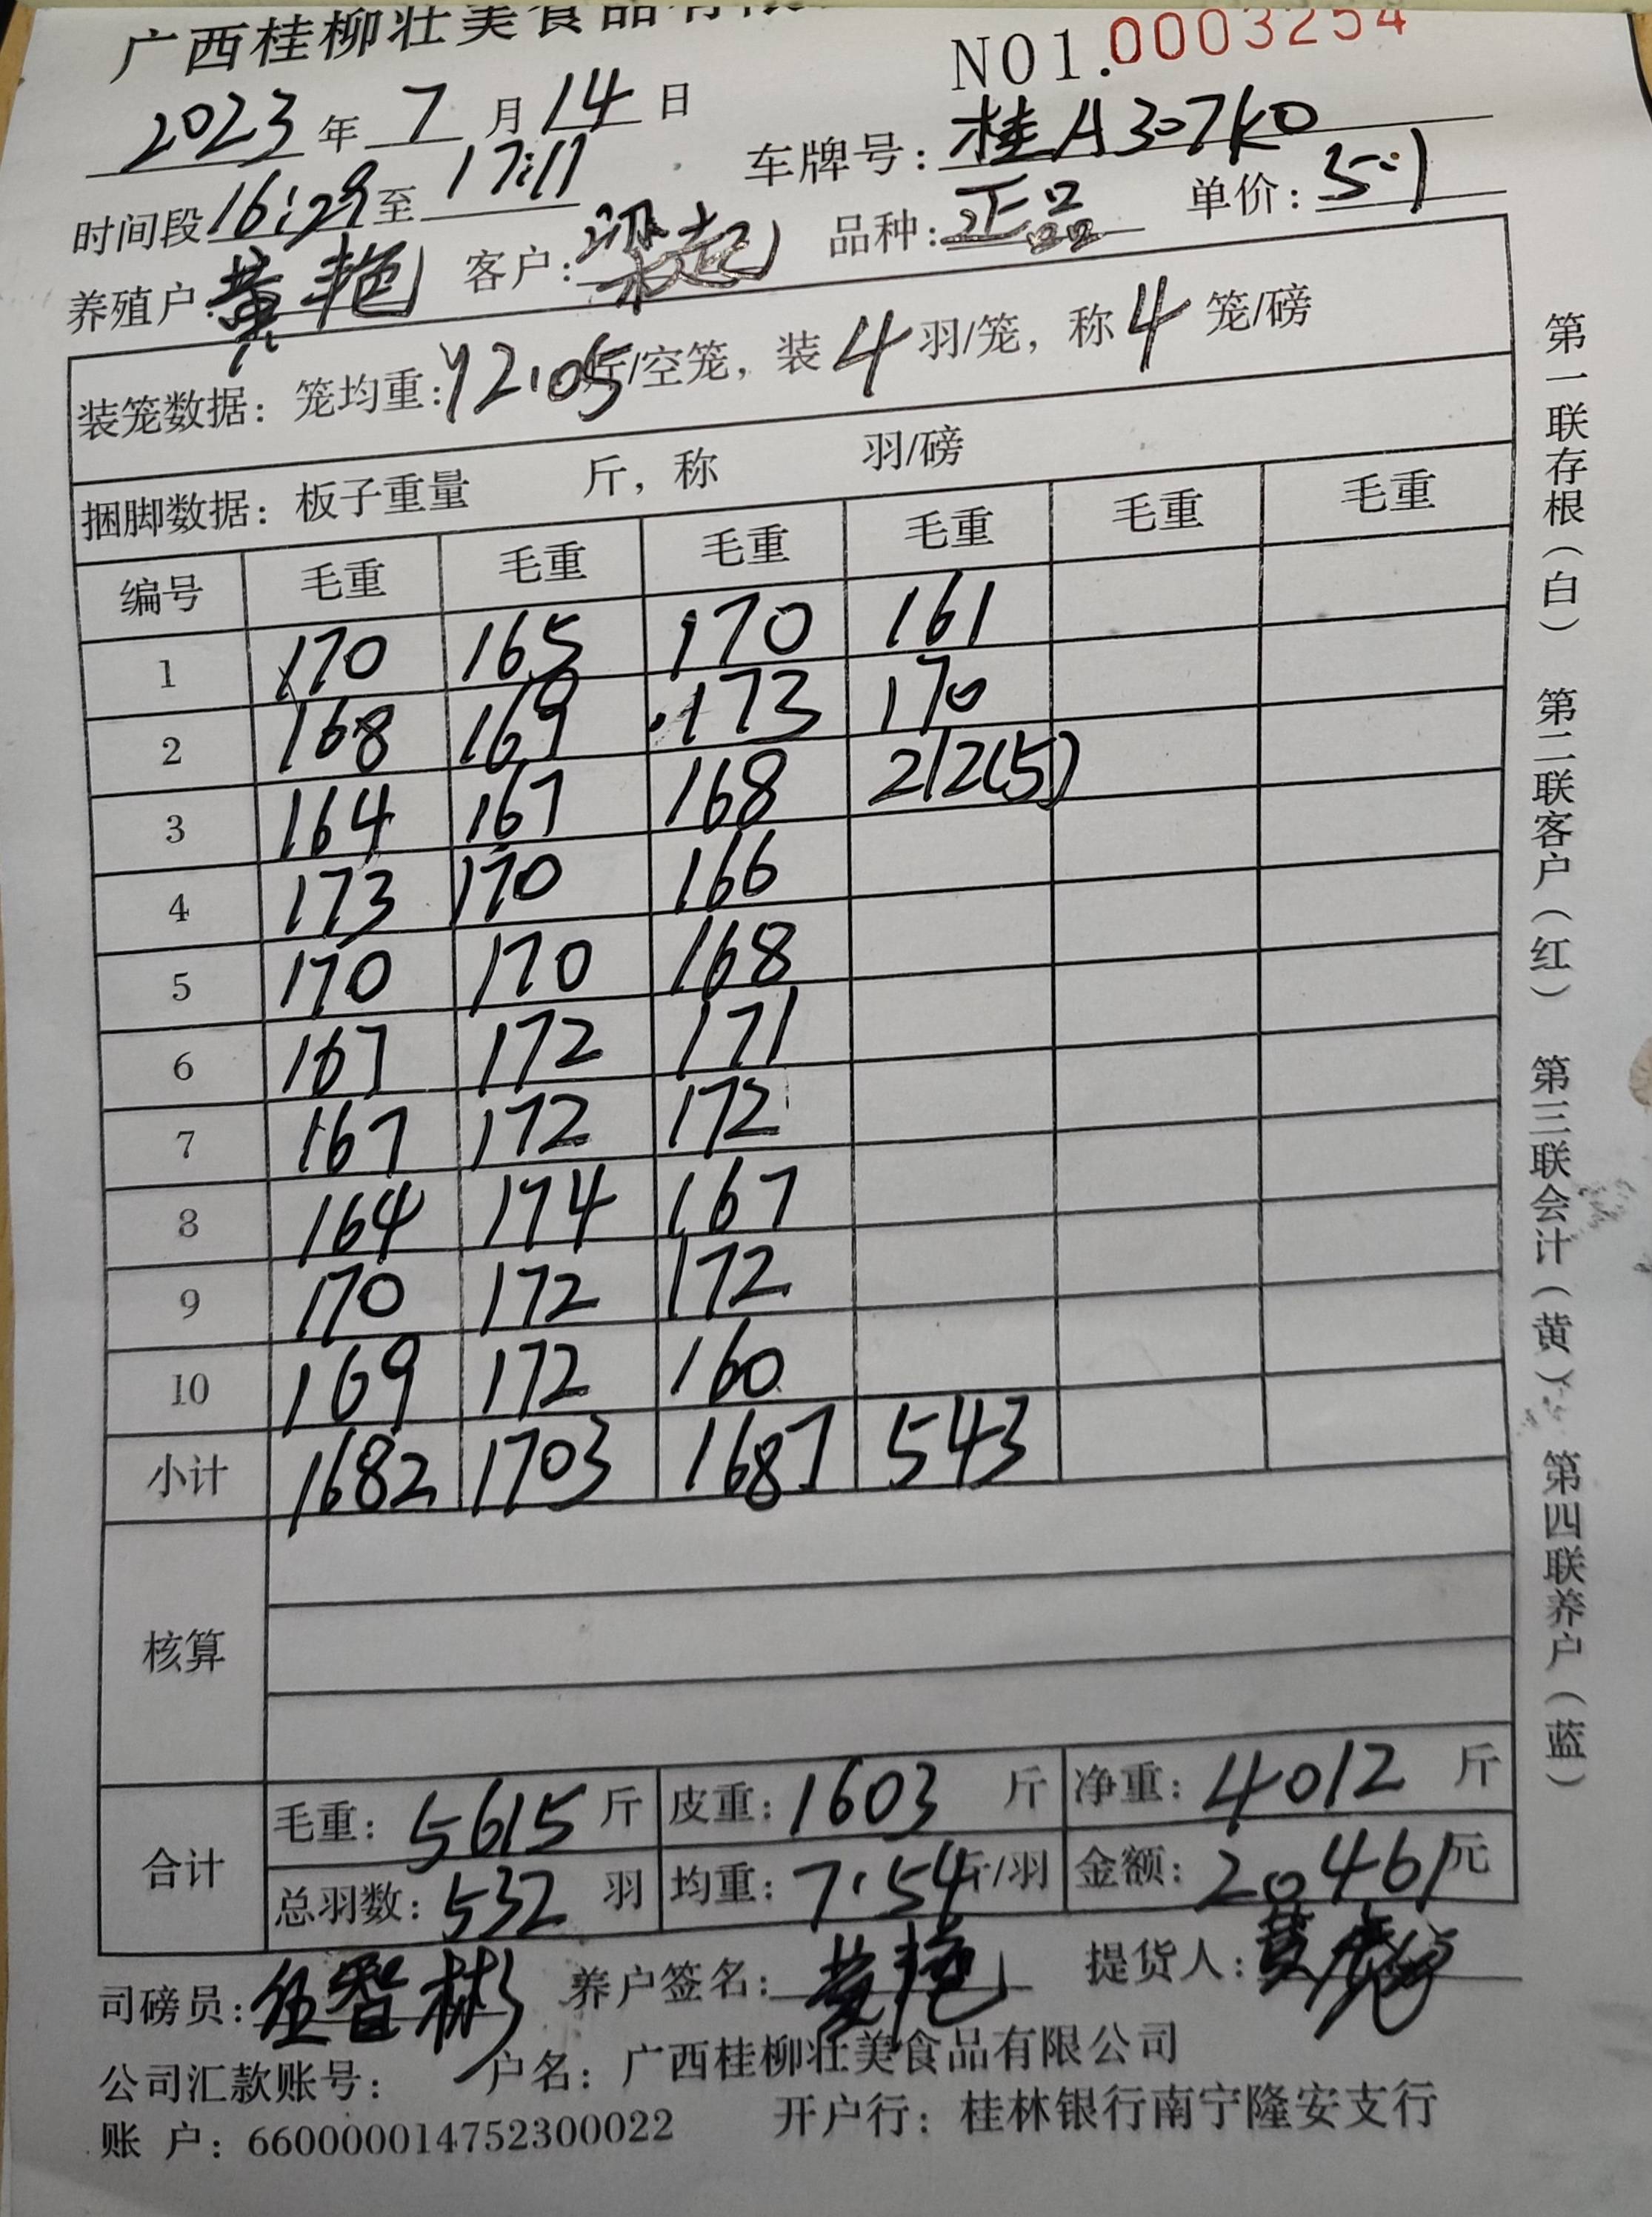 广西桂柳壮美食品有限
NO1.0003254
2023年7月14日
车牌号:桂A307K0
时间段16:29至17:11
养殖户:黄艳 客户:梁起 品种:正品 单价:5.1
装笼数据:笼均重:12.05斤/空笼,装4羽/笼,称4笼/磅
捆脚数据:板子重量 斤,称 羽/磅
编号 毛重 毛重 毛重 毛重 毛重 毛重
1 170 165 170 161
2 168 169 173 170
3 164 167 168 212(5)
4 173 170 166
5 170 170 168
6 167 172 171
7 167 172 172
8 164 174 167
9 170 172 172
10 169 172 160
小计 1682 1703 1687 543
核算
合计 毛重:5615斤 皮重:1603斤 净重:4012斤
总羽数:532羽 均重:7.54斤/羽 金额:20461元
司磅员:伍智彬 养户签名:黄艳 提货人:黄
公司汇款账号: 户名:广西桂柳壮美食品有限公司
账 户:660000014752300022 开户行:桂林银行南宁隆安支行
第一联存根(白) 第二联客户(红) 第三联会计(黄) 第四联养户(蓝)